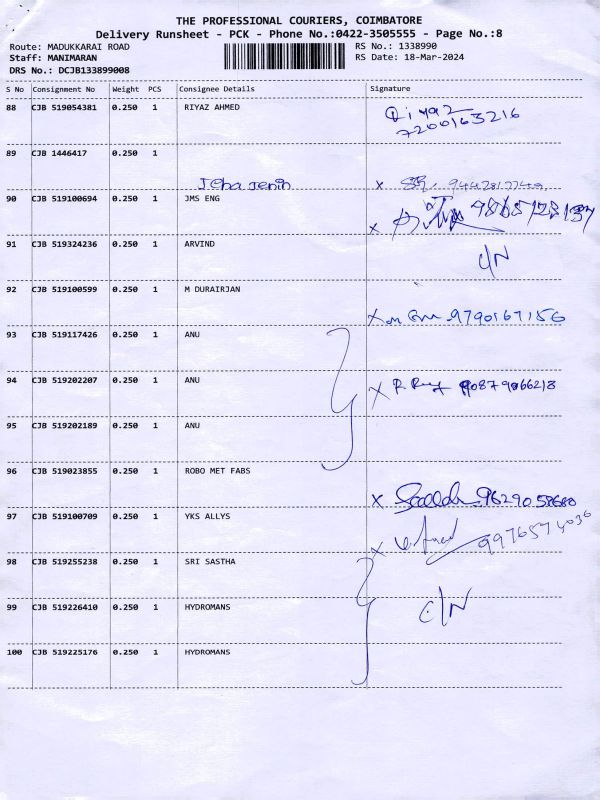 THE PROFESSIONAL COURIERS, COIMBATORE
Delivery Runsheet - PCK - Phone No.:0422-3505555 - Page No.:8
Route: MADUKKARAI ROAD RS No.: 1338990
Staff: MANIMARAN RS Date: 18-Mar-2024
DRS No.: DCJB133899008
S No Consignment No Weight PCS Consignee Details Signature
88 CJB 519054381 0.250 1 RIYAZ AHMED
7200163216
89 CJB 1446417 0.250 1
Jeba Jenin x
90 CJB 519100694 0.250 1 JMS ENG
x 9865128137
91 CJB 519324236 0.250 1 ARVIND
C/N
92 CJB 519100599 0.250 1 M DURAIRJAN
x 9790167156
93 CJB 519117426 0.250 1 ANU
94 CJB 519202207 0.250 1 ANU
x
95 CJB 519202189 0.250 1 ANU
96 CJB 519023855 0.250 1 ROBO MET FABS
x 9629058680
97 CJB 519100709 0.250 1 YKS ALLYS
x 9976574036
98 CJB 519255238 0.250 1 SRI SASTHA
99 CJB 519226410 0.250 1 HYDROMANS
C/N
100 CJB 519225176 0.250 1 HYDROMANS